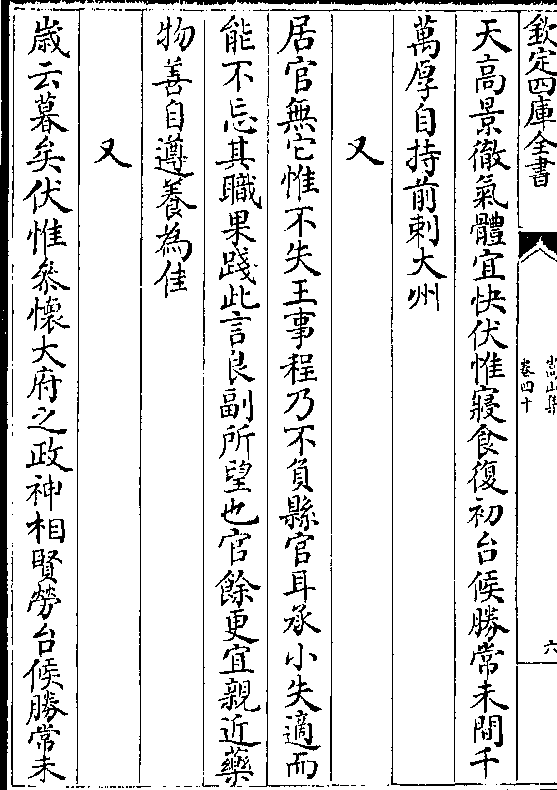 欽定四庫全書
嵩山集
卷四十
六
天高景徹氣體宜快伏惟寢食復初台候勝常未間千
萬厚自持前剌大州
又
居官無它惟不失王事程乃不負縣官耳承小失適而
能不忘其職果踐此言良副所望也官餘更宜親近藥
物善自遵養為佳
又
嵗云暮矣伏惟叅懷大府之政神相賢勞台候勝常未